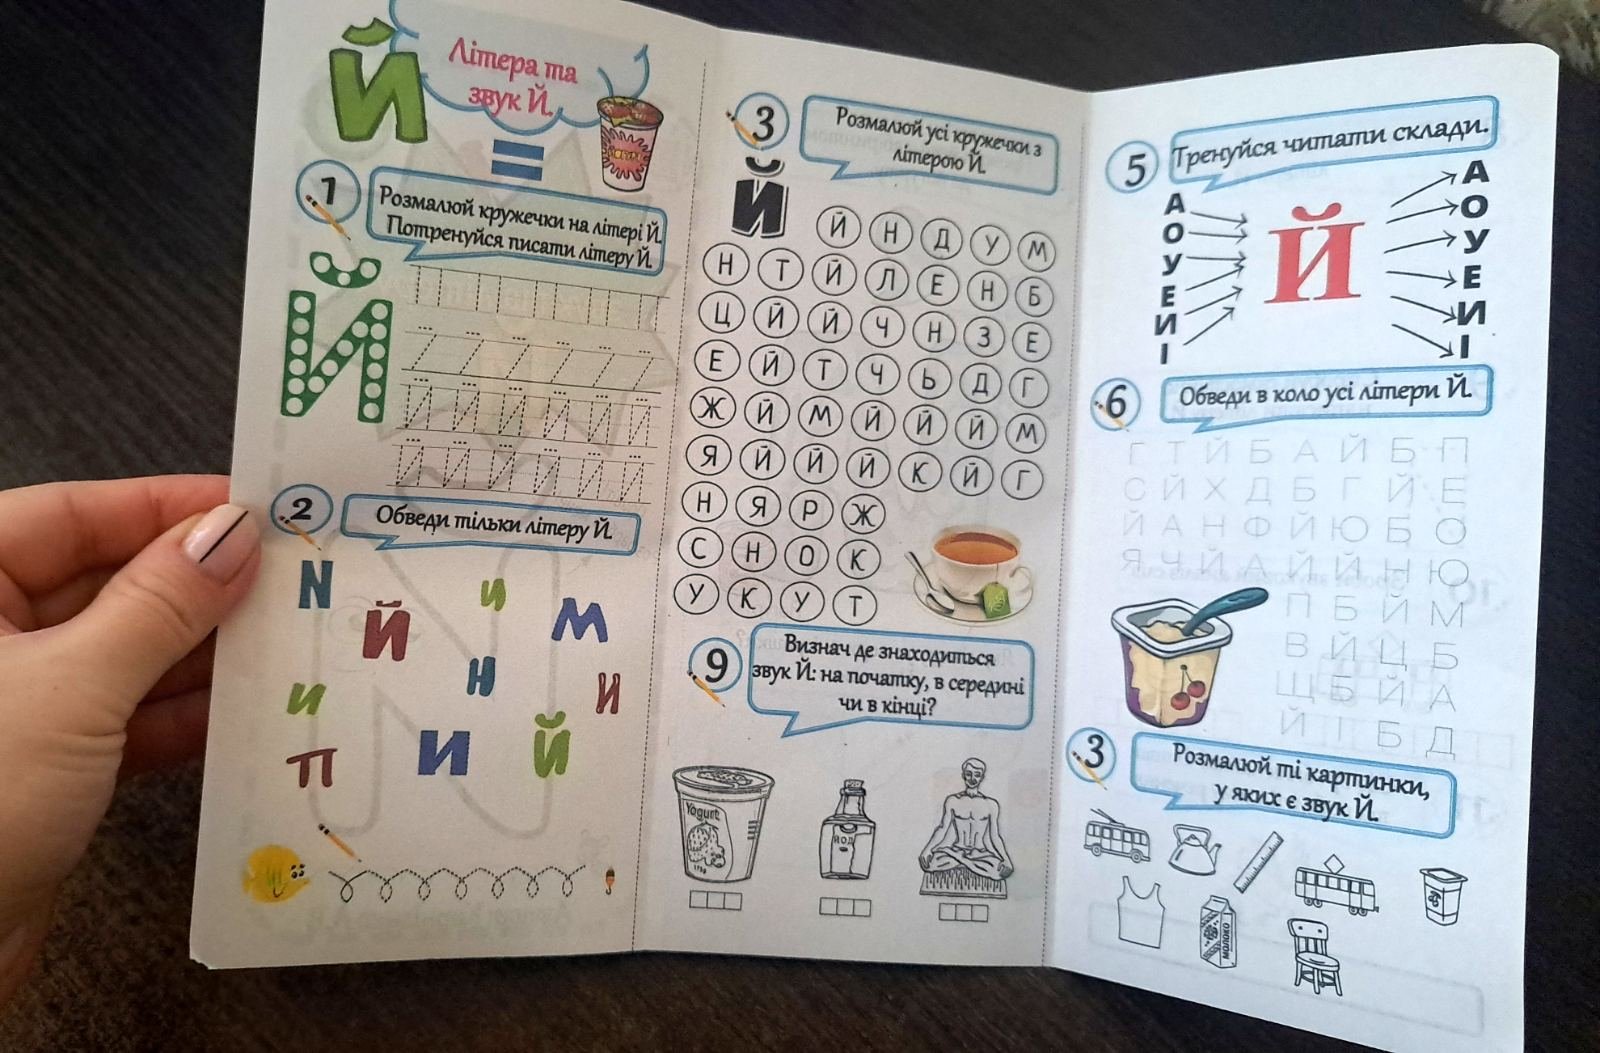 Й
Літера та
звук Й.
=
1
Розмалюй кружечки на літері Й.
Потренуйся писати літеру Й.
Й
2
Обведи тільки літеру Й.
N Й и М
и Н И
П И Й
3
Розмалюй усі кружечки з
літерою Й.
Й
Й Н Д У М
Н Т Й Л Е Н Б
Ц Й Й Ч Н З Е
Е Й Т Ч Ь Д Г
Ж Й М Й Й Й М
Я Й Й Й К Й Г
Н Я Р Ж
С Н О К
У К У Т
9
Визнач де знаходиться
звук Й: на початку, в середині
чи в кінці?
Yogurt
ЙОД
5
Тренуйся читати склади.
А О У Е И І
Й
А О У Е И І
6
Обведи в коло усі літери Й.
Г Т Й Б А Й Б П
С Й Х Д Б Г Й Е
Й А Н Ф Й Ю Б О
Я Ч Й А Й Й Н Ю
П Б Й М
В Й Ц Б
Щ Б Й А
Й І Б Д
3
Розмалюй ті картинки,
у яких є звук Й.
МОЛОКО